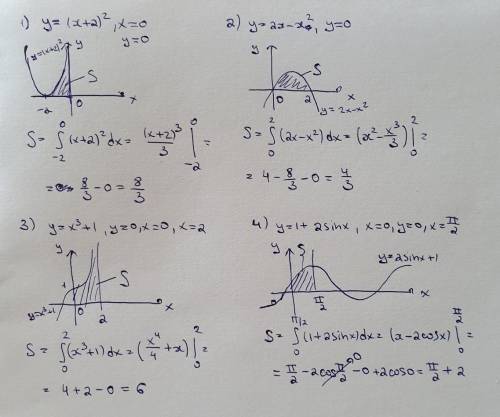 1) y = (x+2)², x=0
y=0
y=(x+2)³
y
S
-2 0 x
S = ∫₋₂⁰ (x+2)² dx = (x+2)³/3 |₋₂⁰ =
= 8/3 - 0 = 8/3
2) y = 2x-x², y=0
y
S
0 2 x
y = 2x-x²
S = ∫₀² (2x-x²) dx = (x² - x³/3) |₀² =
= 4 - 8/3 - 0 = 4/3
3) y = x³+1, y=0, x=0, x=2
y
1
S
y=x³+1
0 2 x
S = ∫₀² (x³+1) dx = (x⁴/4 + x) |₀² =
= 4+2-0 = 6
4) y = 1+2sinx, x=0, y=0, x=π/2
y S
y=2sinx+1
0 π/2 x
S = ∫₀^(π/2) (1+2sinx) dx = (x-2cosx) |₀^(π/2) =
= π/2 - 2cos π/2 - 0 + 2cos0 = π/2 + 2